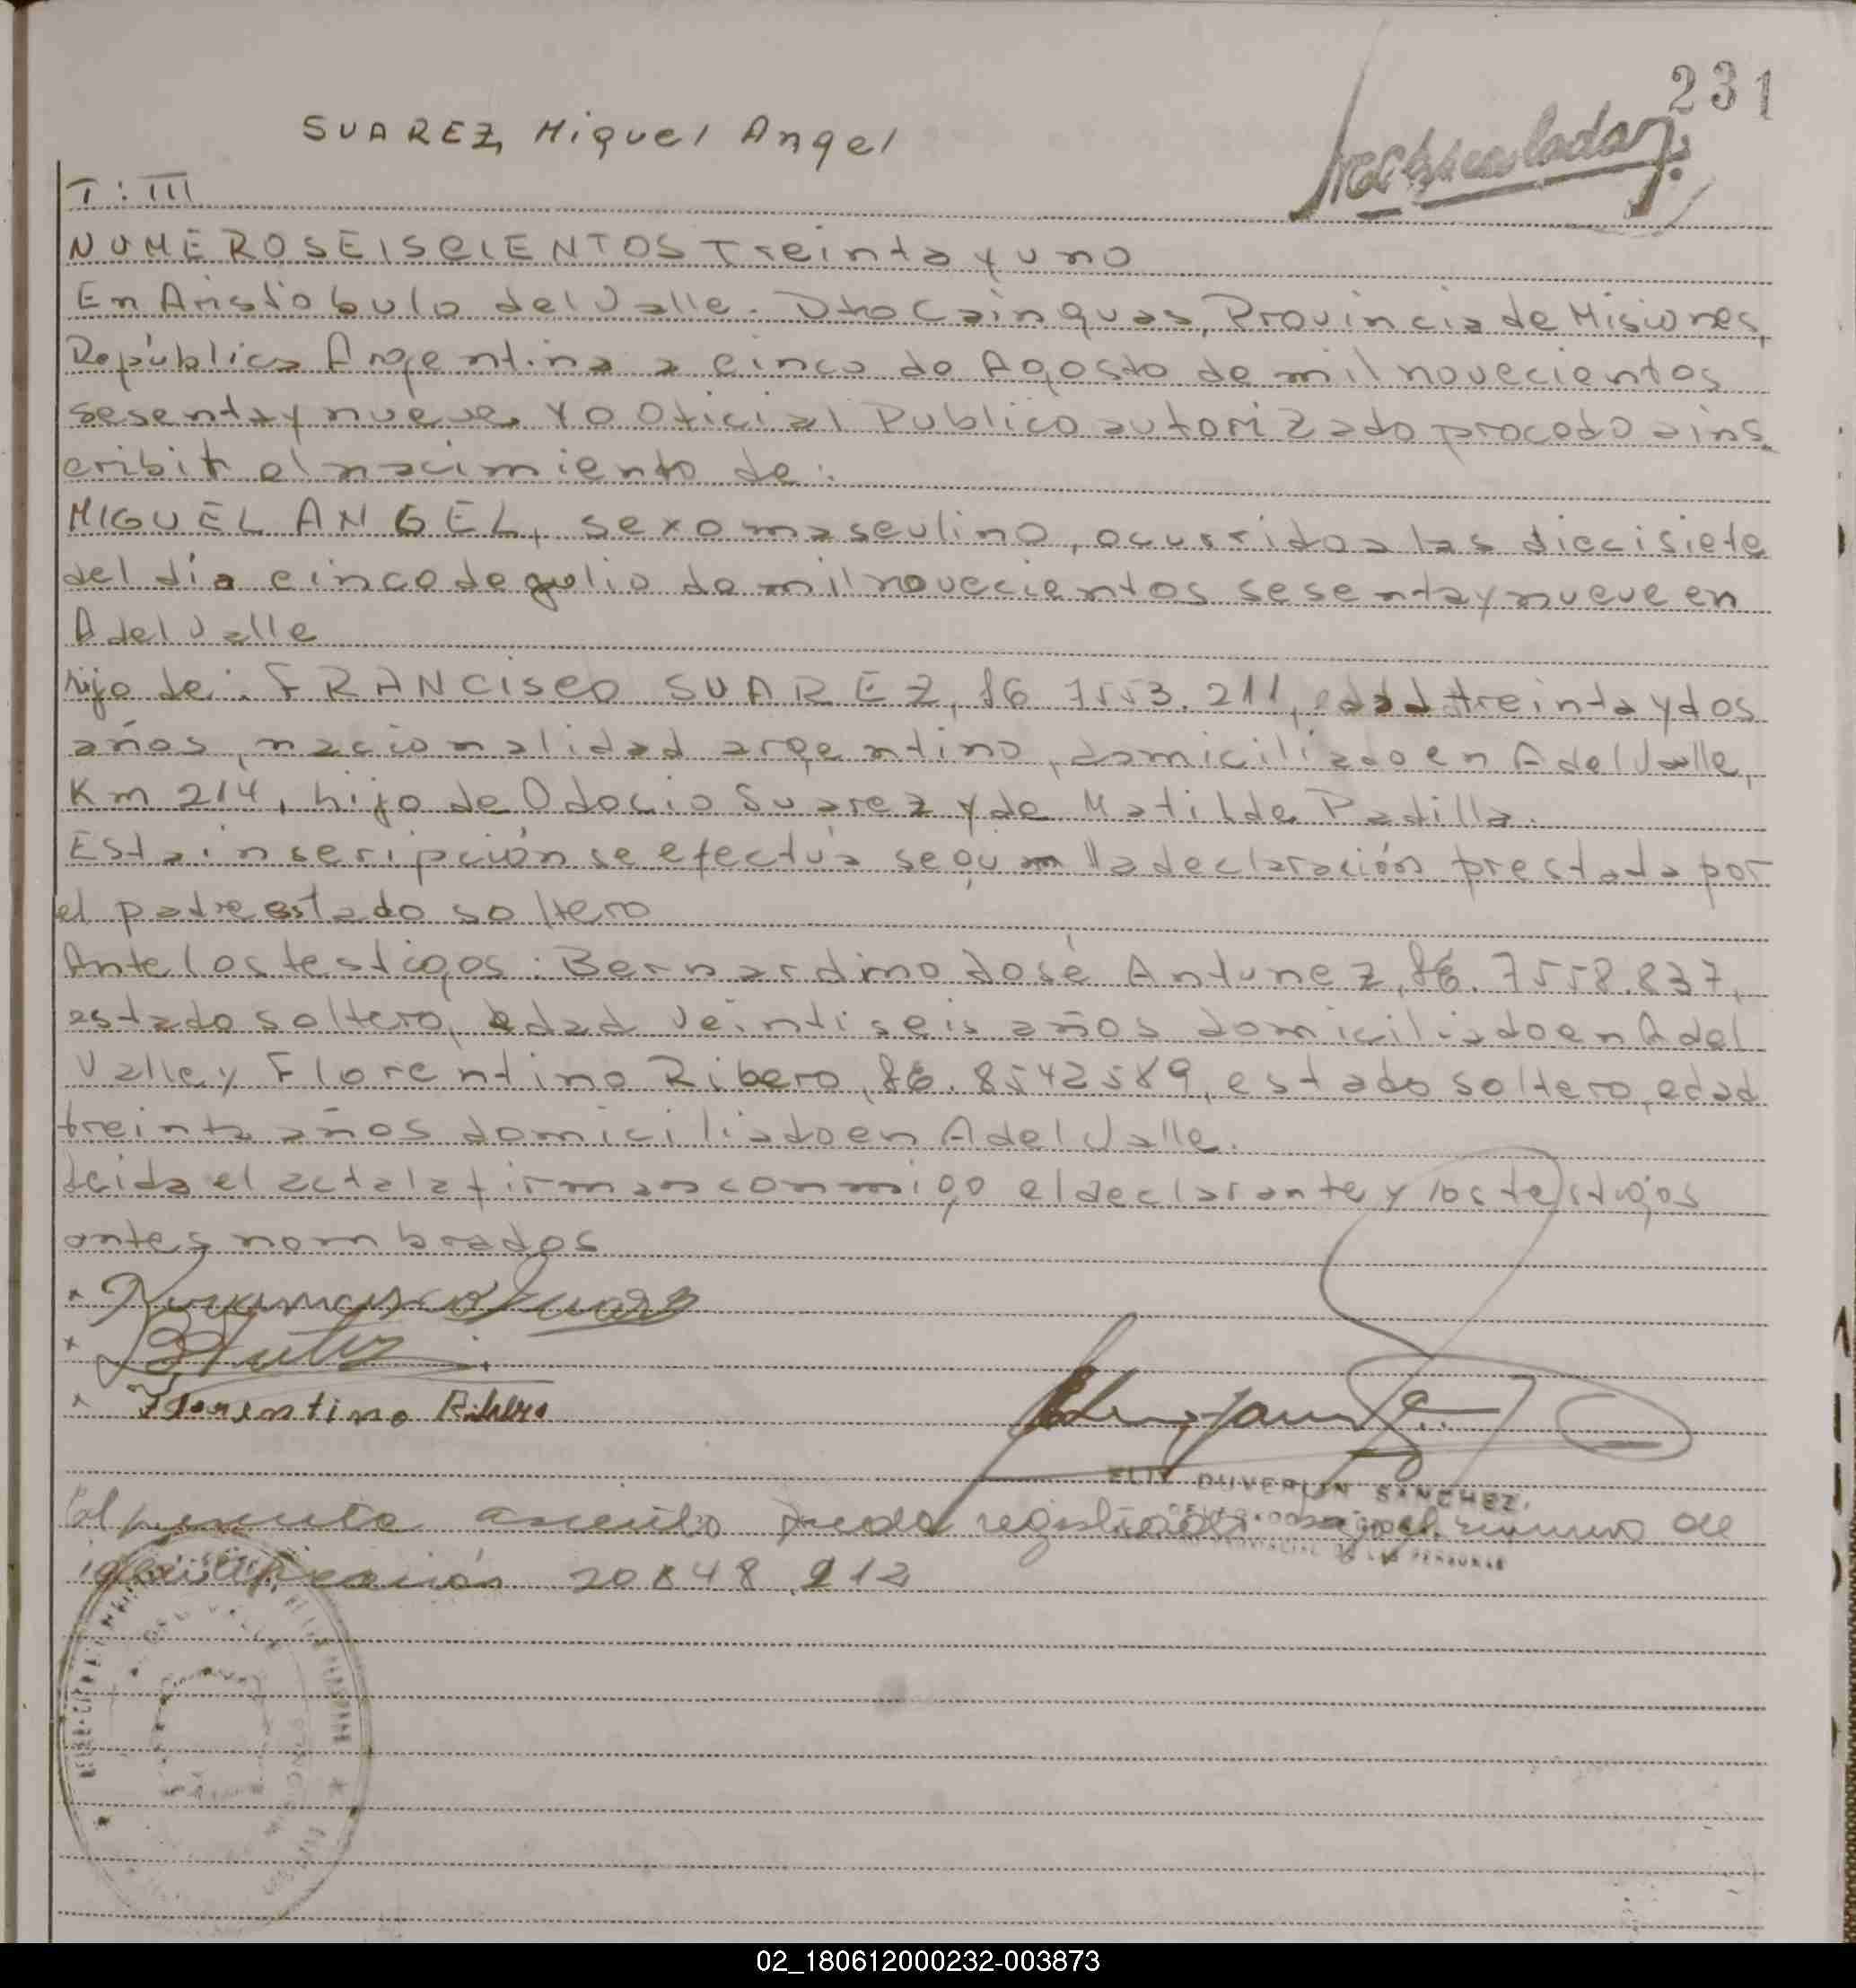 231
SUAREZ, Miguel Angel
T: III
NUMERO SEISCIENTOS Treinta y uno
En Aristóbulo del Valle. Dto Cainguas, Provincia de Misiones,
República Argentina a cinco de Agosto de mil novecientos
sesenta y nueve, Yo Oficial Publico autorizado procedo a ins
cribir el nacimiento de:
MIGUEL ANGEL, sexo masculino, ocurrido a las diecisiete
del día cinco de julio de mil novecientos sesenta y nueve en
A del Valle
hijo de: FRANCISCO SUAREZ, 7553.211, edad treinta y dos
años, nacionalidad argentino, domiciliado en A del Valle,
Km 214, hijo de Odocio Suarez y de Matilde Padilla.
Esta inscripción se efectúa segun la declaración prestada por
el padre estado soltero
Ante los testigos: Bernardino José Antunez, 7558.837,
estado soltero, edad veintiseis años domiciliado en A del
Valle y Florentino Ribero, 8542589, estado soltero, edad
treinta años domiciliado en A del Valle.
Leida el acta la firman conmigo el declarante y los testigos
antes nombrados
Florentino Ribero
DUVERLIN SANCHEZ
El presente asiento queda registrado bajo el numero de
identificación 20848 212
02_180612000232-003873